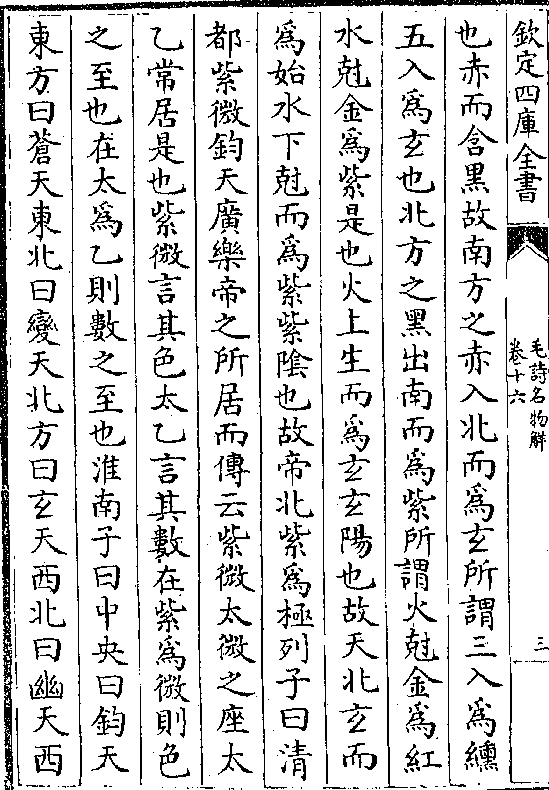 欽定四庫全書
毛詩名物解
卷十六
三
也赤而含黒故南方之赤入北而爲玄所謂三入爲纁
五入爲玄也北方之黒出南而爲紫所謂火尅金爲紅
水尅金爲紫是也火上生而爲玄玄陽也故天北玄而
爲始水下尅而爲紫紫陰也故帝北紫爲極列子曰清
都紫微鈞天廣樂帝之所居而傳云紫微太微之座太
乙常居是也紫微言其色太乙言其數在紫爲微則色
之至也在太爲乙則數之至也淮南子曰中央曰鈞天
東方曰蒼天東北曰變天北方曰玄天西北曰幽天西